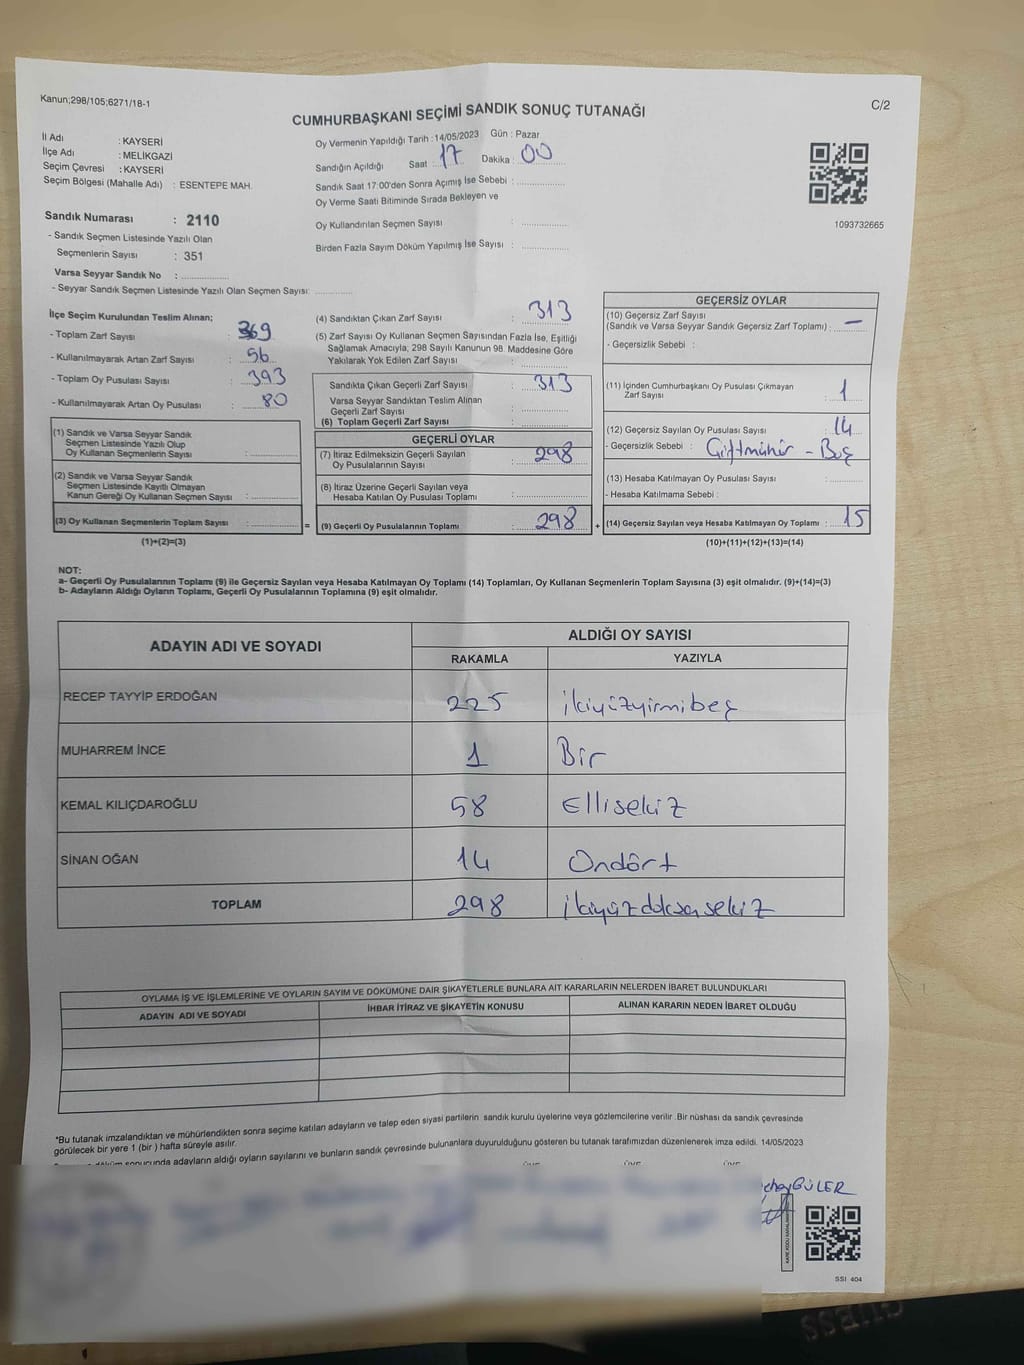 Kanun;298/105;6271/18-1
C/2
CUMHURBAŞKANI SEÇİMİ SANDIK SONUÇ TUTANAĞI
İl Adı : KAYSERİ
İlçe Adı : MELİKGAZİ
Seçim Çevresi : KAYSERİ
Seçim Bölgesi (Mahalle Adı) : ESENTEPE MAH.
Oy Vermenin Yapıldığı Tarih : 14/05/2023 Gün : Pazar
Sandığın Açıldığı Saat : 17 Dakika : 00
Sandık Saat 17:00'den Sonra Açımış İse Sebebi :
Oy Verme Saati Bitiminde Sırada Bekleyen ve
Oy Kullandırılan Seçmen Sayısı :
Birden Fazla Sayım Döküm Yapılmış İse Sayısı :
1093732665
Sandık Numarası : 2110
- Sandık Seçmen Listesinde Yazılı Olan
Seçmenlerin Sayısı : 351
Varsa Seyyar Sandık No :
- Seyyar Sandık Seçmen Listesinde Yazılı Olan Seçmen Sayısı:
İlçe Seçim Kurulundan Teslim Alınan;
- Toplam Zarf Sayısı : 369
- Kullanılmayarak Artan Zarf Sayısı : 56
- Toplam Oy Pusulası Sayısı : 393
- Kullanılmayarak Artan Oy Pusulası : 80
(1) Sandık ve Varsa Seyyar Sandık
Seçmen Listesinde Yazılı Olup
Oy Kullanan Seçmenlerin Sayısı :
(2) Sandık ve Varsa Seyyar Sandık
Seçmen Listesinde Kayıtlı Olmayan
Kanun Gereği Oy Kullanan Seçmen Sayısı :
(3) Oy Kullanan Seçmenlerin Toplam Sayısı : =
(1)+(2)=(3)
(4) Sandıktan Çıkan Zarf Sayısı : 313
(5) Zarf Sayısı Oy Kullanan Seçmen Sayısından Fazla İse, Eşitliği
Sağlamak Amacıyla, 298 Sayılı Kanunun 98. Maddesine Göre
Yakılarak Yok Edilen Zarf Sayısı :
Sandıkta Çıkan Geçerli Zarf Sayısı : 313
Varsa Seyyar Sandıktan Teslim Alınan
Geçerli Zarf Sayısı :
(6) Toplam Geçerli Zarf Sayısı :
GEÇERLİ OYLAR
(7) İtiraz Edilmeksizin Geçerli Sayılan
Oy Pusulalarının Sayısı : 298
(8) İtiraz Üzerine Geçerli Sayılan veya
Hesaba Katılan Oy Pusulası Toplamı :
(9) Geçerli Oy Pusulalarının Toplamı : 298 +
GEÇERSİZ OYLAR
(10) Geçersiz Zarf Sayısı
(Sandık ve Varsa Seyyar Sandık Geçersiz Zarf Toplamı) : –
- Geçersizlik Sebebi :
(11) İçinden Cumhurbaşkanı Oy Pusulası Çıkmayan
Zarf Sayısı : 1
(12) Geçersiz Sayılan Oy Pusulası Sayısı : 14
- Geçersizlik Sebebi : Çiftmühür - Boş
(13) Hesaba Katılmayan Oy Pusulası Sayısı :
- Hesaba Katılmama Sebebi :
(14) Geçersiz Sayılan veya Hesaba Katılmayan Oy Toplamı : 15
(10)+(11)+(12)+(13)=(14)
NOT:
a- Geçerli Oy Pusulalarının Toplamı (9) ile Geçersiz Sayılan veya Hesaba Katılmayan Oy Toplamı (14) Toplamları, Oy Kullanan Seçmenlerin Toplam Sayısına (3) eşit olmalıdır. (9)+(14)=(3)
b- Adayların Aldığı Oyların Toplamı, Geçerli Oy Pusulalarının Toplamına (9) eşit olmalıdır.
ADAYIN ADI VE SOYADI
ALDIĞI OY SAYISI
RAKAMLA YAZIYLA
RECEP TAYYİP ERDOĞAN 225 ikiyüzyirmibeş
MUHARREM İNCE 1 Bir
KEMAL KILIÇDAROĞLU 58 Ellisekiz
SİNAN OĞAN 14 Ondört
TOPLAM 298 ikiyüzdoksansekiz
OYLAMA İŞ VE İŞLEMLERİNE VE OYLARIN SAYIM VE DÖKÜMÜNE DAİR ŞİKAYETLERLE BUNLARA AİT KARARLARIN NELERDEN İBARET BULUNDUKLARI
ADAYIN ADI VE SOYADI İHBAR İTİRAZ VE ŞİKAYETİN KONUSU ALINAN KARARIN NEDEN İBARET OLDUĞU
*Bu tutanak imzalandıktan ve mühürlendikten sonra seçime katılan adayların ve talep eden siyasi partilerin sandık kurulu üyelerine veya gözlemcilerine verilir. Bir nüshası da sandık çevresinde
görülecek bir yere 1 (bir ) hafta süreyle asılır.
sonucunda adayların aldığı oyların sayılarını ve bunların sandık çevresinde bulunanlara duyurulduğunu gösteren bu tutanak tarafımızdan düzenlenerek imza edildi. 14/05/2023
GÜLER
SSI 404
GUESS